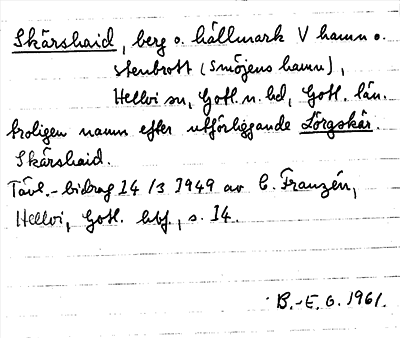 Skärshaid, berg o. hällmark V hamn o.
stenbrott (Smöjens hamn),
Hellvi sn, Gotl. n. hd, Gotl. län.
troligen namn efter utförliggande Lörgskär.
Skärshaid.
Tävl.-bidrag 14/3 1949 av C. Franzén,
Hellvi, Gotl. hbf., s. 14.
B.-E. G. 1961.